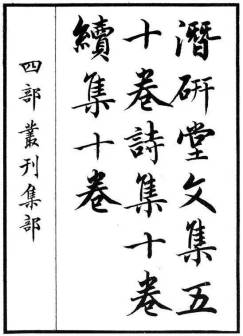 潛研堂文集五
十卷詩集十卷
續集十卷
四部叢刊集部